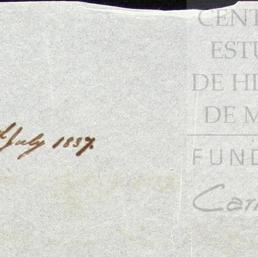 CENT
ESTU
DE HI
DE M
FUND
Car
d July 1837.